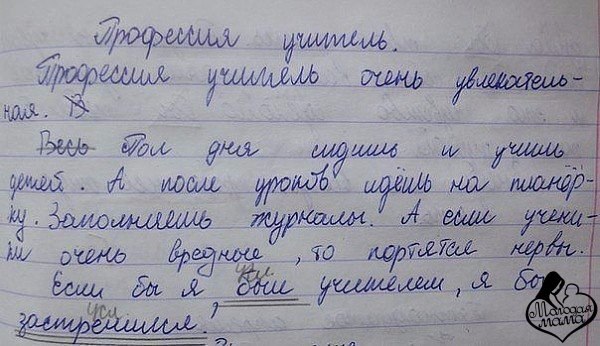 Профессия учитель.
Профессия учитель очень увлекатель-
ная. В
Весь Пол дня сидишь и учишь
детей. А после уроков идёшь на планёр-
ку. Заполняешь журналы. А если учени-
ки очень вредные, то портятся нервы.
усл.
Если бы я был учителем, я бы
усл
застрелился.
Молодая
мама